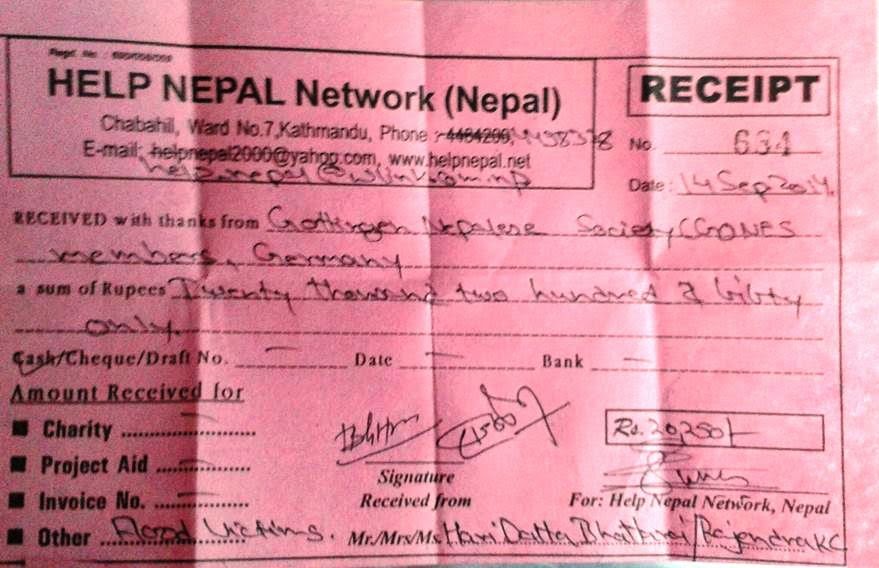 HELP NEPAL Network (Nepal)
RECEIPT
Chabahil, Ward No.7,Kathmandu, Phone : 4464200, 4438378
No. 634
E-mail: helpnepal2000@yahoo.com, www.helpnepal.net
help.nepal@wlink.com.np
Date: 14 Sep 2014
RECEIVED with thanks from Gottingen Nepalese Society (GONES
members, Germany
a sum of Rupees Twenty thousand two hundred & fifty
only.
Cash/Cheque/Draft No. – Date – Bank –
Amount Received for
Charity –
Rs. 20,250/-
Project Aid –
Signature
Invoice No. –
Received from
For: Help Nepal Network, Nepal
Other Flood Victims. Mr./Mrs/Ms Hari Datta Bhattarai/Rajendra KC